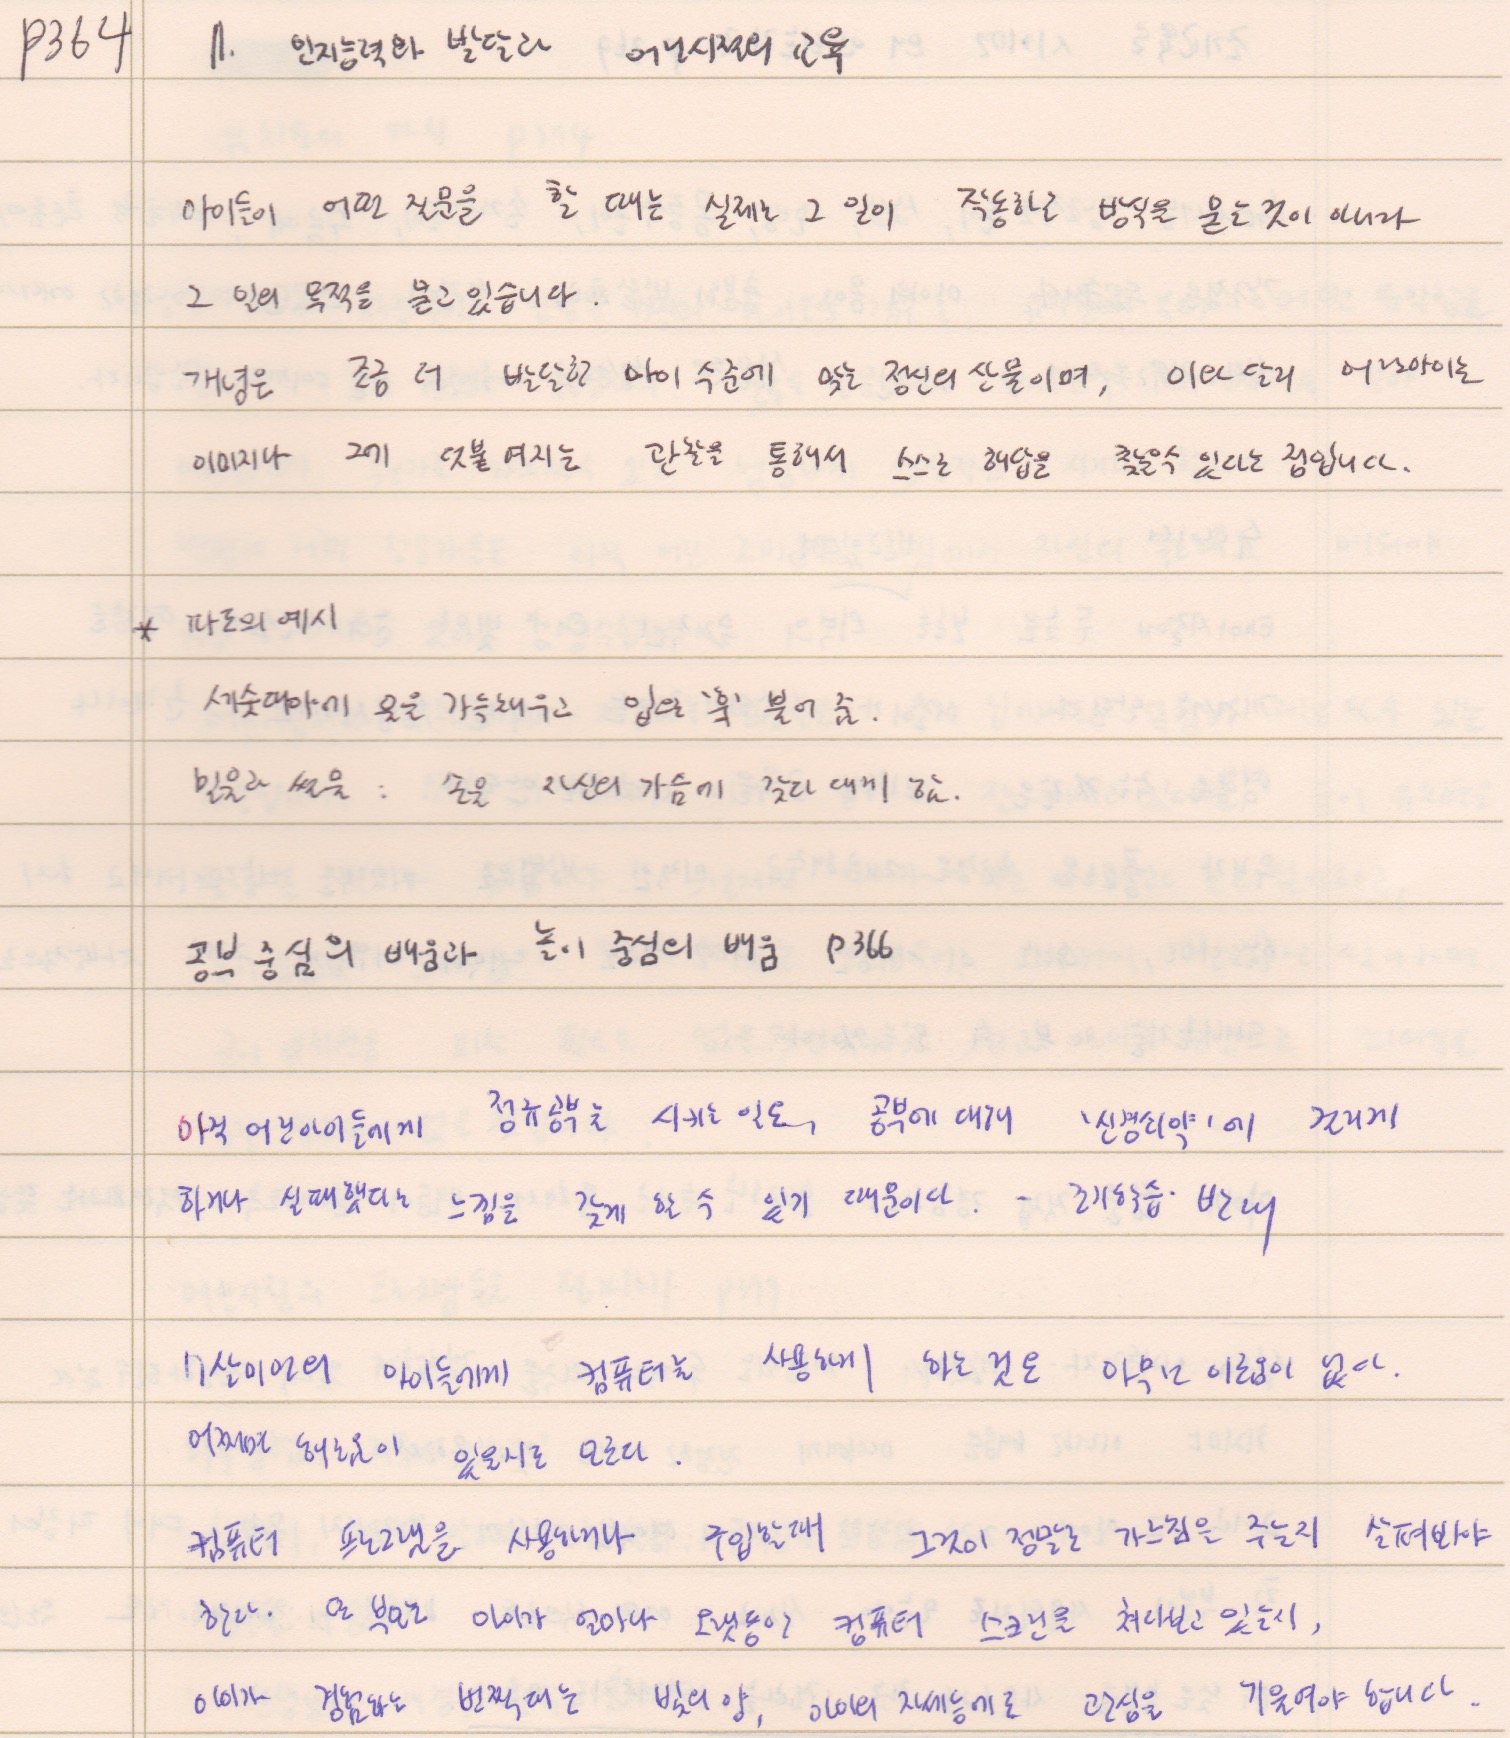 p364
11. 인지능력의 발달과 어린시절의 교육
아이들이 어떤 질문을 할 때는 실제로 그 일이 작동하는 방식을 묻는것이 아니라
그 일의 목적을 묻고 있습니다.
개념은 조금 더 발달한 아이 수준에 맞는 정신의 산물이며, 이와 달리 어린아이는
이미지나 그에 덧붙여지는 관찰을 통해서 스스로 해답을 찾을수 있다는 점입니다.
* 파도의 예시
세숫대야에 물을 가득채우고 입으로 '훅' 불어 줌.
밀물과 썰물 : 손을 자신의 가슴에 갖다 대게 함.
공부 중심의 배움과 놀이 중심의 배움 p366
아직 어린아이들에게 정규공부를 시키는 일은, 공부에 대해 '신경쇠약'에 걸리게
하거나 실패했다는 느낌을 갖게 할 수 있기 때문이다. - 조기학습 반대
7살미만의 아이들에게 컴퓨터를 사용하게 하는 것은 아무런 이로움이 없다.
어쩌면 해로움이 있을지도 모른다.
컴퓨터 프로그램을 사용하거나 구입할때 그것이 정말로 가르침을 주는지 살펴봐야
한다. 또 부모는 아이가 얼마나 오랫동안 컴퓨터 스크린을 쳐다보고 있는지,
아이가 경험하는 번쩍대는 빛의 양, 아이의 자세등에도 관심을 기울여야 합니다.